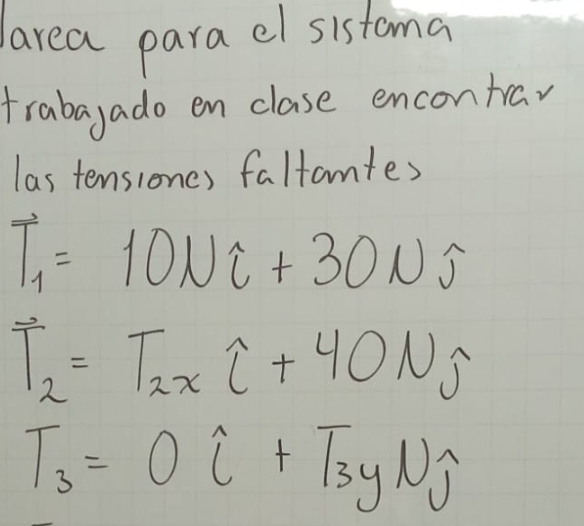 Tarea para el sistema
trabajado en clase encontrar
las tensiones faltantes
T⃗₁ = 10N î + 30N ĵ
T⃗₂ = T₂ₓ î + 40N ĵ
T₃ = 0 î + T₃y N ĵ